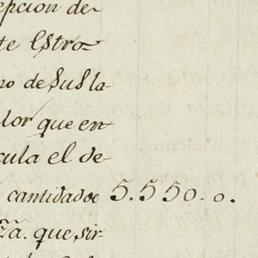 epcion de-
te Estro-
no de Sus la-
lor que en
cula el de-
cantidad de 5.550.0.
ña. que, sir-